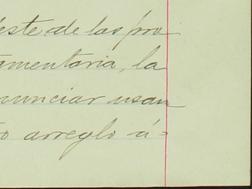 este de las pro
amentaria, la
nunciar usan
o arreglo á=